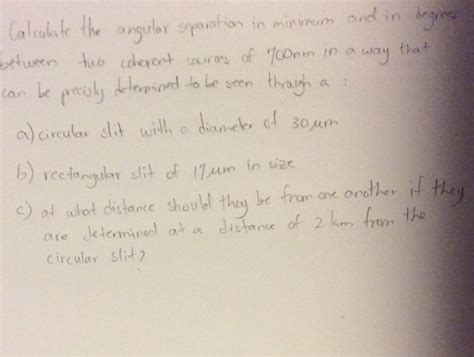 Calculate the angular separation in minimum and in degrees
between two coherent sources of 700nm in a way that
can be precisly determined to be seen through a :
a) circular slit with a diameter of 30 μm
b) rectangular slit of 17 μm in size
c) at what distance should they be from one another if they
are determined at a distance of 2 km from the
circular slit?